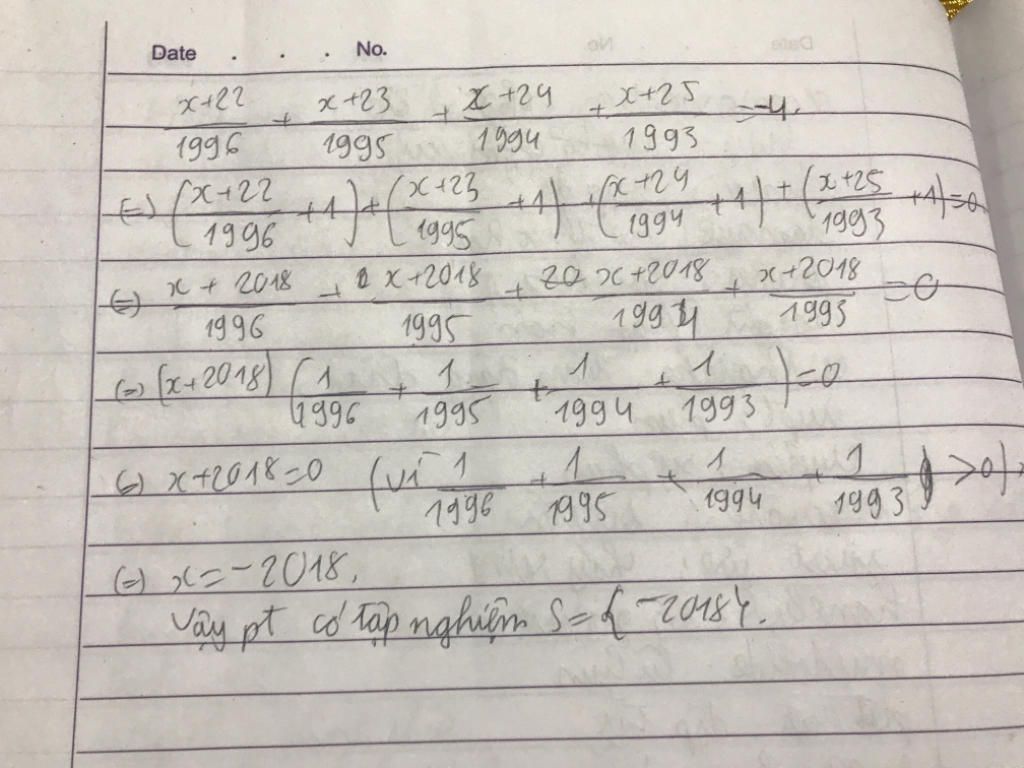 Date . . . No.
x+22/1996 + x+23/1995 + x+24/1994 + x+25/1993 = -4.
(=) (x+22/1996 + 1) + (x+23/1995 + 1) + (x+24/1994 + 1) + (x+25/1993 + 1) = 0
(=) x + 2018/1996 + x+2018/1995 + 20 x+2018/1994 + x+2018/1993 = 0
(=) (x+2018) (1/1996 + 1/1995 + 1/1994 + 1/1993) = 0
(=) x+2018=0 (vì 1/1996 + 1/1995 + 1/1994 + 1/1993 > 0)
(=) x = -2018.
Vậy pt có tập nghiệm S = { -2018}.